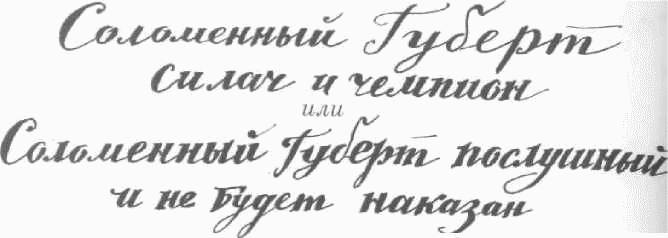 Соломенный Губерт
силач и чемпион
или
Соломенный Губерт послушный
и не будет наказан